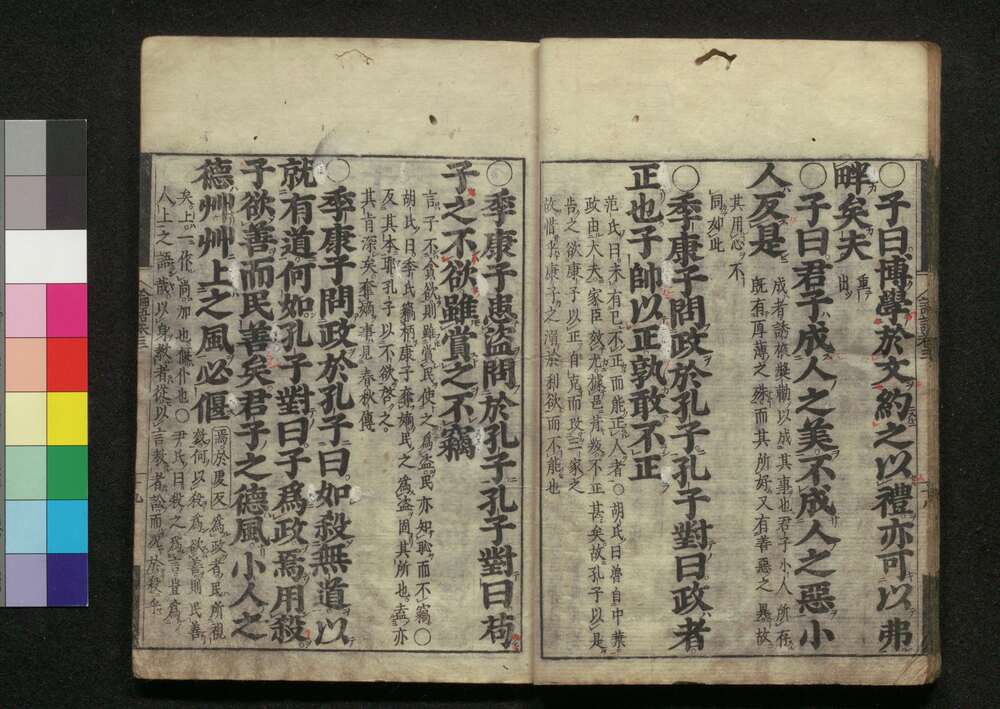 ○子曰博學於文約之以禮亦可以弗
畔矣夫 重出
○子曰君子成人之美不成人之惡小
人反是 成者誘掖奬勸以成其事也君子小人所存
既有厚薄之殊而其所好又有善惡之異故
其用心不
同如此
○季康子問政於孔子孔子對曰政者
正也子帥以正孰敢不正
范氏曰未有己不正而能正人者○胡氏曰魯自中葉
政由大夫家臣效尤據邑背叛不正甚矣故孔子以是
告之欲康子以正自克而改三家之
故惜乎康子之溺於利欲而不能也
○季康子患盜問於孔子孔子對曰苟
子之不欲雖賞之不竊
言子不貪欲則雖賞民使之爲盜民亦知恥而不竊○
胡氏曰季氏竊柄康子奪嫡民之爲盜固其所也盍亦
反其本耶孔子以不欲啓之
其旨深矣奪嫡事見春秋傳
○季康子問政於孔子曰如殺無道以
就有道何如孔子對曰子爲政焉用殺
子欲善而民善矣君子之德風小人之
德艸艸上之風必偃 焉於虔反 爲政者民所視
效何以殺爲欲善則民善
矣上一作尚加也偃仆也○尹氏曰殺之爲言豈爲
人上之語哉以身教者從以言教者訟而況於殺乎